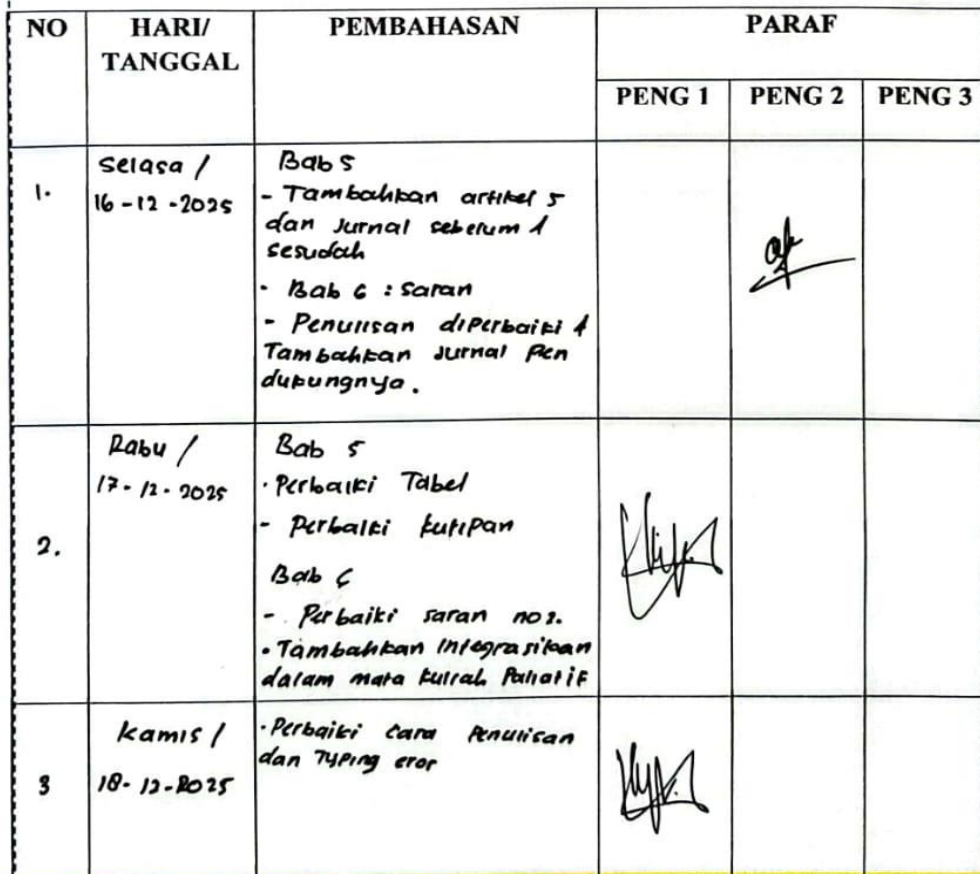 NO HARI/ PEMBAHASAN PARAF
TANGGAL
PENG 1 PENG 2 PENG 3
1. Selasa / Bab 5
16-12-2025 - Tambahkan artikel 5
dan Jurnal sebelum &
sesudah
- Bab 6 : Saran
- Penulisan diperbaiki &
Tambahkan Jurnal Pen
dukungnya.
2. Rabu / Bab 5
17-12-2025 - Perbaiki Tabel
- Perbaiki kutipan
Bab 6
- Perbaiki saran no 2.
- Tambahkan Integrasikan
dalam mata kuliah Paliatif
3 Kamis / - Perbaiki cara Penulisan
18-12-2025 dan Typing eror